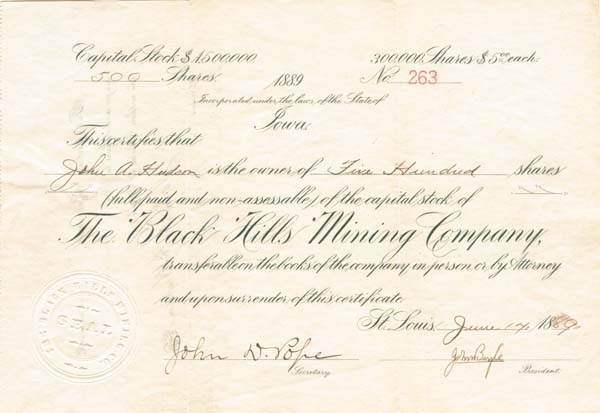 Capital Stock $1,500,000. 300,000 Shares $5.00 each.
500 Shares 1889 No. 263
Incorporated under the laws of the State of
Iowa.
This certifies that
John A. Hudson is the owner of Five Hundred shares
(full paid and non-assessable) of the capital stock of
The Black Hills Mining Company,
transferable on the books of the company in person or by Attorney
and upon surrender of this certificate.
St. Louis, June 14 1889
John D. Pope
Secretary.
President.
THE BLACK HILLS MINING CO.
SEAL